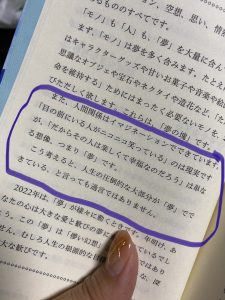 ン、空想、思い、情
るもののすべてです。
「モノ」も「人」も、「夢」を大量に含ん
まず、「モノ」は夢を多く含みます。たとえ
はキャラクターグッズや甘いお菓子や音楽や絵
思議なオブジェや宝石やオクタイや造花など、「た
命を維持する」ためにはまったく必要ないモノを、
びただしく欲します。これらは、「夢の塊」です。
また、人間関係はイマジネーションでできています。
「目の前にいる人がニコニコ笑っている」のは現実です
が、「だからその人は楽しくて幸福なのだろう」は単な
る想像、つまり「夢」です。
こう考えると、人生の圧倒的な大部分が「夢」ででき
ている、と言っても過言ではありません。
2022年は、「夢」が様々に動くときです。年明け、あ
なたの心は大きな愛と歓びの夢に
ょう。この「夢」は「儚い幻想」
せん。むしろ人生の最頭的な目標
大な歓びです。